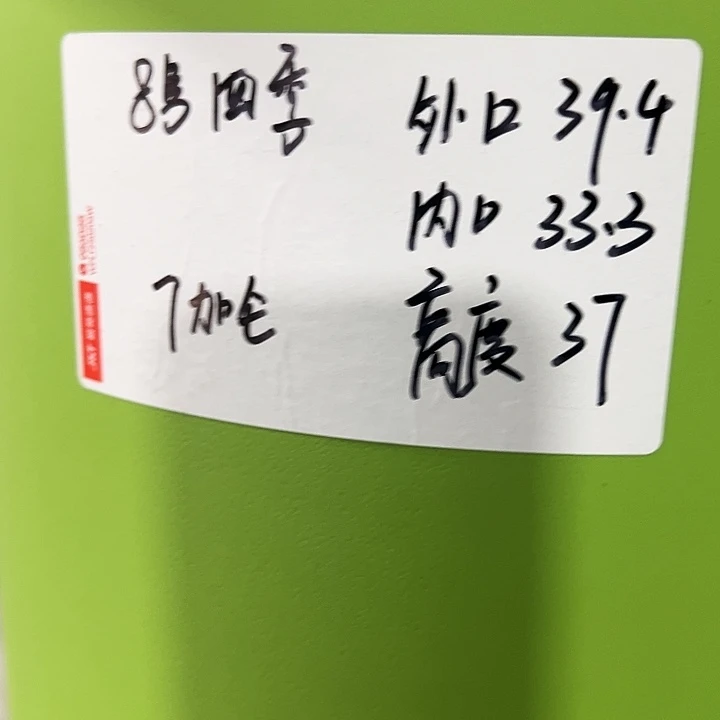 8号四季
外口 39.4
内口 33.3
7加仑
高度 37